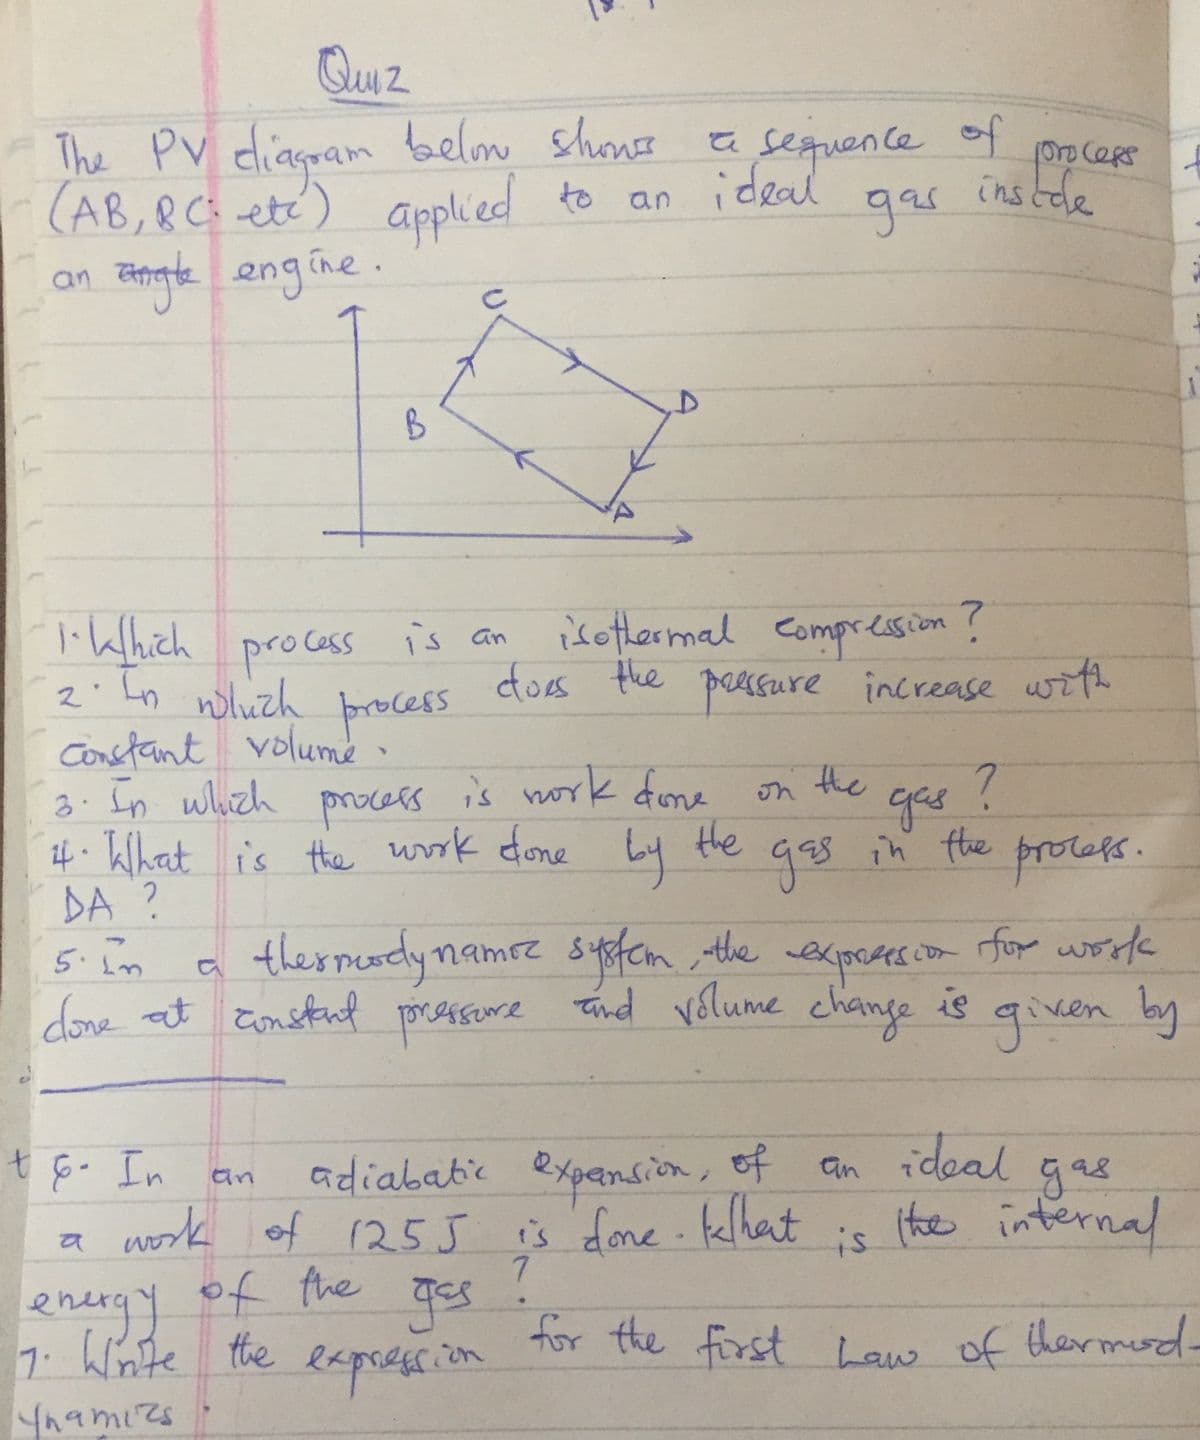 Quiz
The PV diagram below shows a sequence of process
(AB, BC: etc) applied to an ideal gas inside
an angle engine.
C
D
B
A
1. Which process is an isothermal compression?
2. In which process does the pressure increase with
constant volume.
3. In which process is work done on the gas?
4. What is the work done by the gas in the process.
DA?
5. In a thermodynamic system, the expression for work
done at constant pressure and volume change is given by
6. In an adiabatic expansion, of an ideal gas
a work of 125 J is done. What is the internal
energy of the gas?
7. Write the expression for the first Law of thermod-
ynamics.